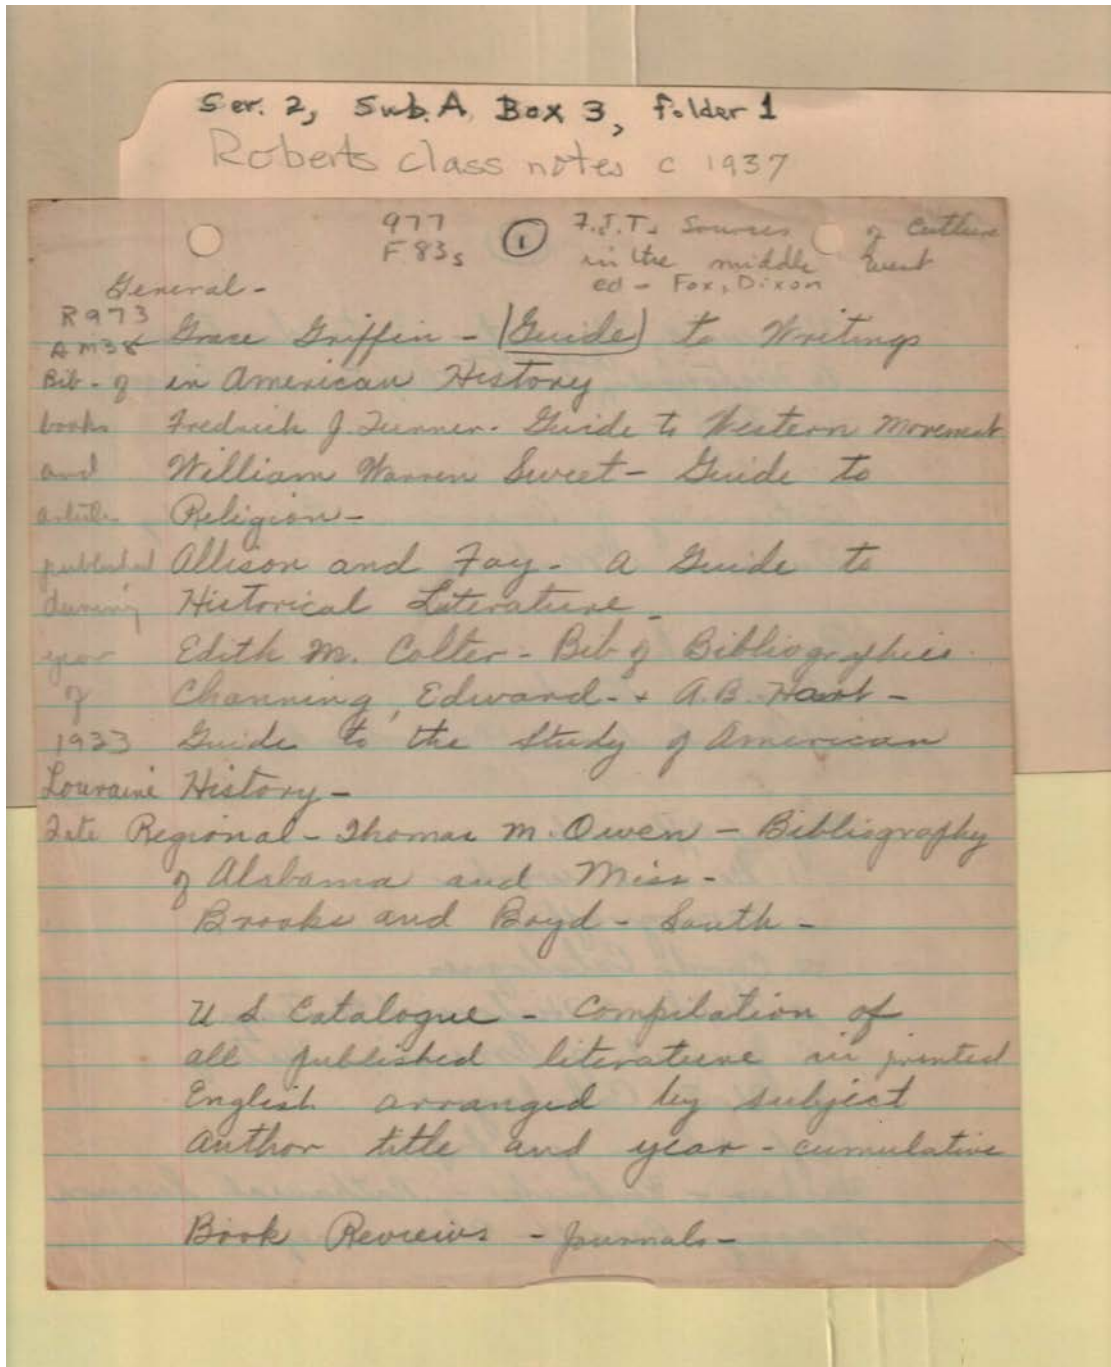 Ser. 2, Sub. A, Box 3, folder 1
Roberts class notes c 1937
977
F83s
1
F.J.T. Sources of Culture
in the middle West
ed - Fox, Dixon
General -
R973
Am38
Grace Griffin - (Guide) to Writings
Bib - of in American History
books Fredrick J. Turner - Guide to Western Movement
and William Warren Sweet - Guide to
article Religion -
published Allison and Fay - a Guide to
during Historical Literature -
year Edith M. Colter - Bib of Bibliographies.
of Channing, Edward - + A.B. Hart -
1933 Guide to the Study of American
Louraine History -
Regional - Thomas M. Owen - Bibliography
of Alabama and Miss -
Brooks and Boyd - South -
U S Catalogue - Compilation of
all published literature in printed
English arranged by subject
author title and year - cumulative
Book Reviews - Journals -